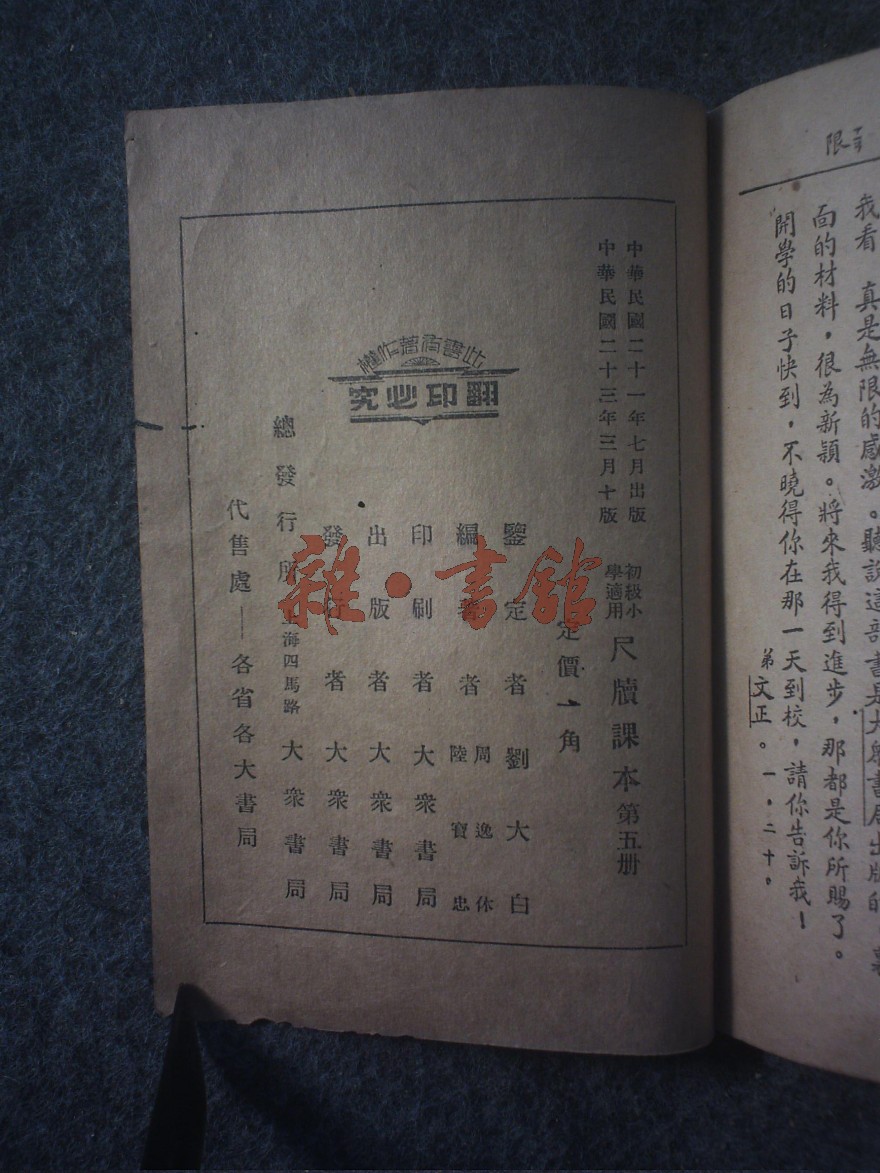 限
我看 真是無限的感激。聽說這部書是大眾書局出版的
面的材料，很為新穎。將來我得到進步，那都是你所賜了。
開學的日子快到，不曉得你在那一天到校，請你告訴我！
弟文正。一，二十。
中華民國二十一年七月出版
中華民國二十三年三月十版
初級小學適用
尺牘課本第五册
定價一角
鑒定者劉大白
編著者
周逸休
陸寶忠
印刷者大衆書局
出版者大衆書局
發行者大衆書局
總發行所上海四馬路大衆書局
代售處——各省各大書局
此書有著作權
翻印必究
雜·書館